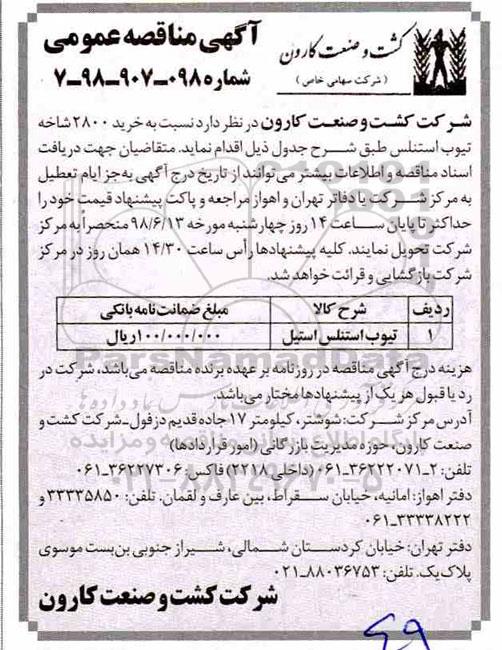 کشت و صنعت کارون
( شرکت سهامی خاص )
آگهی مناقصه عمومی
شماره ۰۹۸-۹۰۷-۹۸-۷
شرکت کشت و صنعت کارون در نظر دارد نسبت به خرید ۲۸۰۰ شاخه
تیوب استنلس طبق شرح جدول ذیل اقدام نماید. متقاضیان جهت دریافت
اسناد مناقصه و اطلاعات بیشتر می توانند از تاریخ درج آگهی به جز ایام تعطیل
به مرکز شرکت یا دفاتر تهران و اهواز مراجعه و پاکت پیشنهاد قیمت خود را
حداکثر تا پایان ساعت ۱۴ روز چهارشنبه مورخه ۹۸/۶/۱۳ منحصراً به مرکز
شرکت تحویل نمایند. کلیه پیشنهادها رأس ساعت ۱۴/۳۰ همان روز در مرکز
شرکت بازگشایی و قرائت خواهد شد.
ردیف شرح کالا مبلغ ضمانت نامه بانکی
۱ تیوب استنلس استیل ۱۰۰/۰۰۰/۰۰۰ ریال
هزینه درج آگهی مناقصه در روزنامه بر عهده برنده مناقصه می باشد، شرکت در
رد یا قبول هر یک از پیشنهادها مختار می باشد.
آدرس مرکز شرکت: شوشتر، کیلومتر ۱۷ جاده قدیم دزفول-شرکت کشت و
صنعت کارون، حوزه مدیریت بازرگانی (امور قراردادها)
تلفن: ۲-۳۶۲۲۲۰۷۱-۰۶۱ (داخلی ۲۲۱۸) فاکس ۳۶۲۲۷۳۰۶-۰۶۱
دفتر اهواز: امانیه، خیابان سقراط، بین عارف و لقمان. تلفن: ۳۳۳۳۵۸۵۰ و
۳۳۳۳۸۲۲۲-۰۶۱
دفتر تهران: خیابان کردستان شمالی، شیراز جنوبی بن بست موسوی
پلاک یک. تلفن: ۸۸۰۳۶۷۵۳-۰۲۱
شرکت کشت و صنعت کارون
ParsNamadData
۰۲۱-۸۸۳۴۹۶۷۰-۵